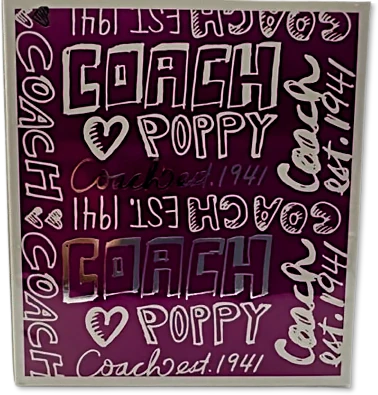 COACH EST. 1941
COACH
POPPY
Coach est. 1941
COACH
Coach est. 1941
COACH EST. 1941
COACH
POPPY
Coach est. 1941
COACH
Coach est. 1941